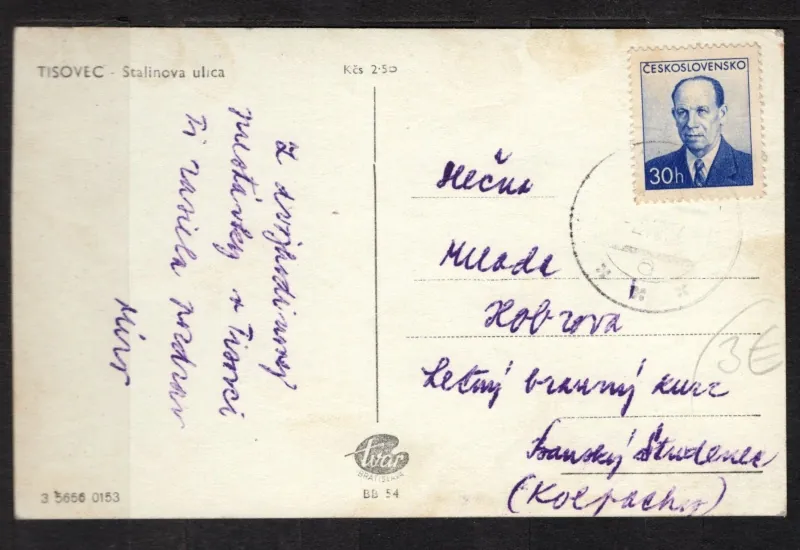 TISOVEC - Stalinova ulica
Kčs 2·50
ČESKOSLOVENSKO
30h
Z dvojhodinovej
prestávky v Tisovci
Ti zasiela pozdrav
Miro
Slečna
Milada
Hobzova
Letný branný kurz
Banský Študenec
(Kolpachy)
3€
tvar
BRATISLAVA
BB 54
3 5656 0153